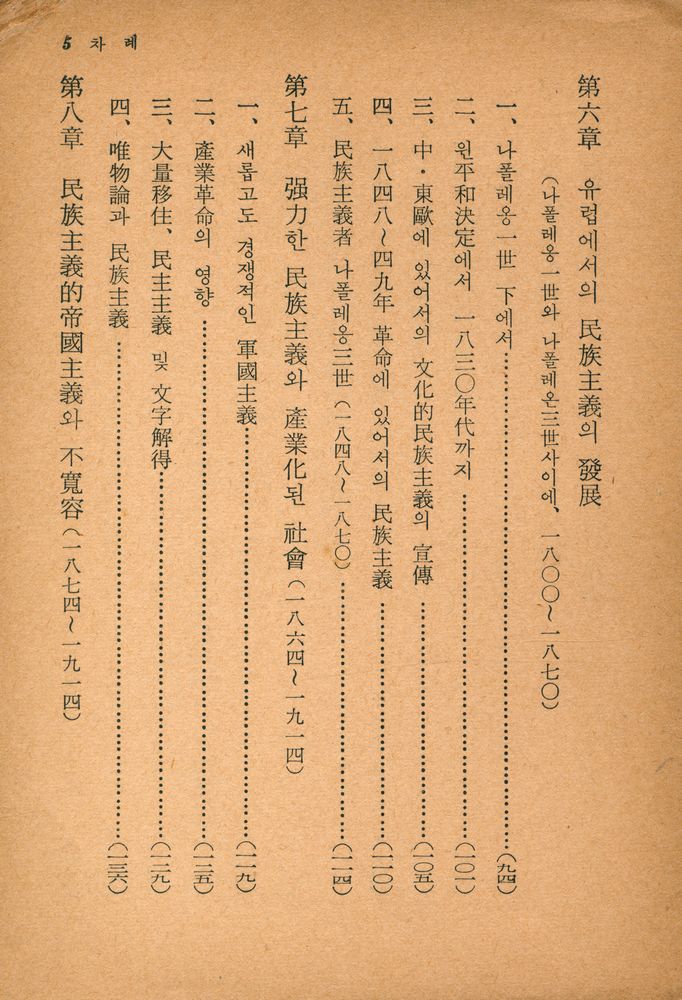 5 차 례
第六章 유럽에서의 民族主義의 發展
(나폴레옹一世와 나폴레온三世사이에、一八〇〇~一八七〇)
一、나폴레옹一世 下에서……(九四)
二、윈平和決定에서 一八三〇年代까지……(一〇一)
三、中・東歐에 있어서의 文化的民族主義의 宣傳……(一〇五)
四、一八四八~四九年 革命에 있어서의 民族主義……(一一〇)
五、民族主義者 나폴레옹三世 (一八四八~一八七〇)……(一一四)
第七章 强力한 民族主義와 產業化된 社會 (一八六四~一九一四)
一、새롭고도 경쟁적인 軍國主義……(一一九)
二、產業革命의 영향……(一二五)
三、大量移住、民主主義 및 文字解得……(一二九)
四、唯物論과 民族主義……(一三六)
第八章 民族主義的帝國主義와 不寬容 (一八七四~一九一四)